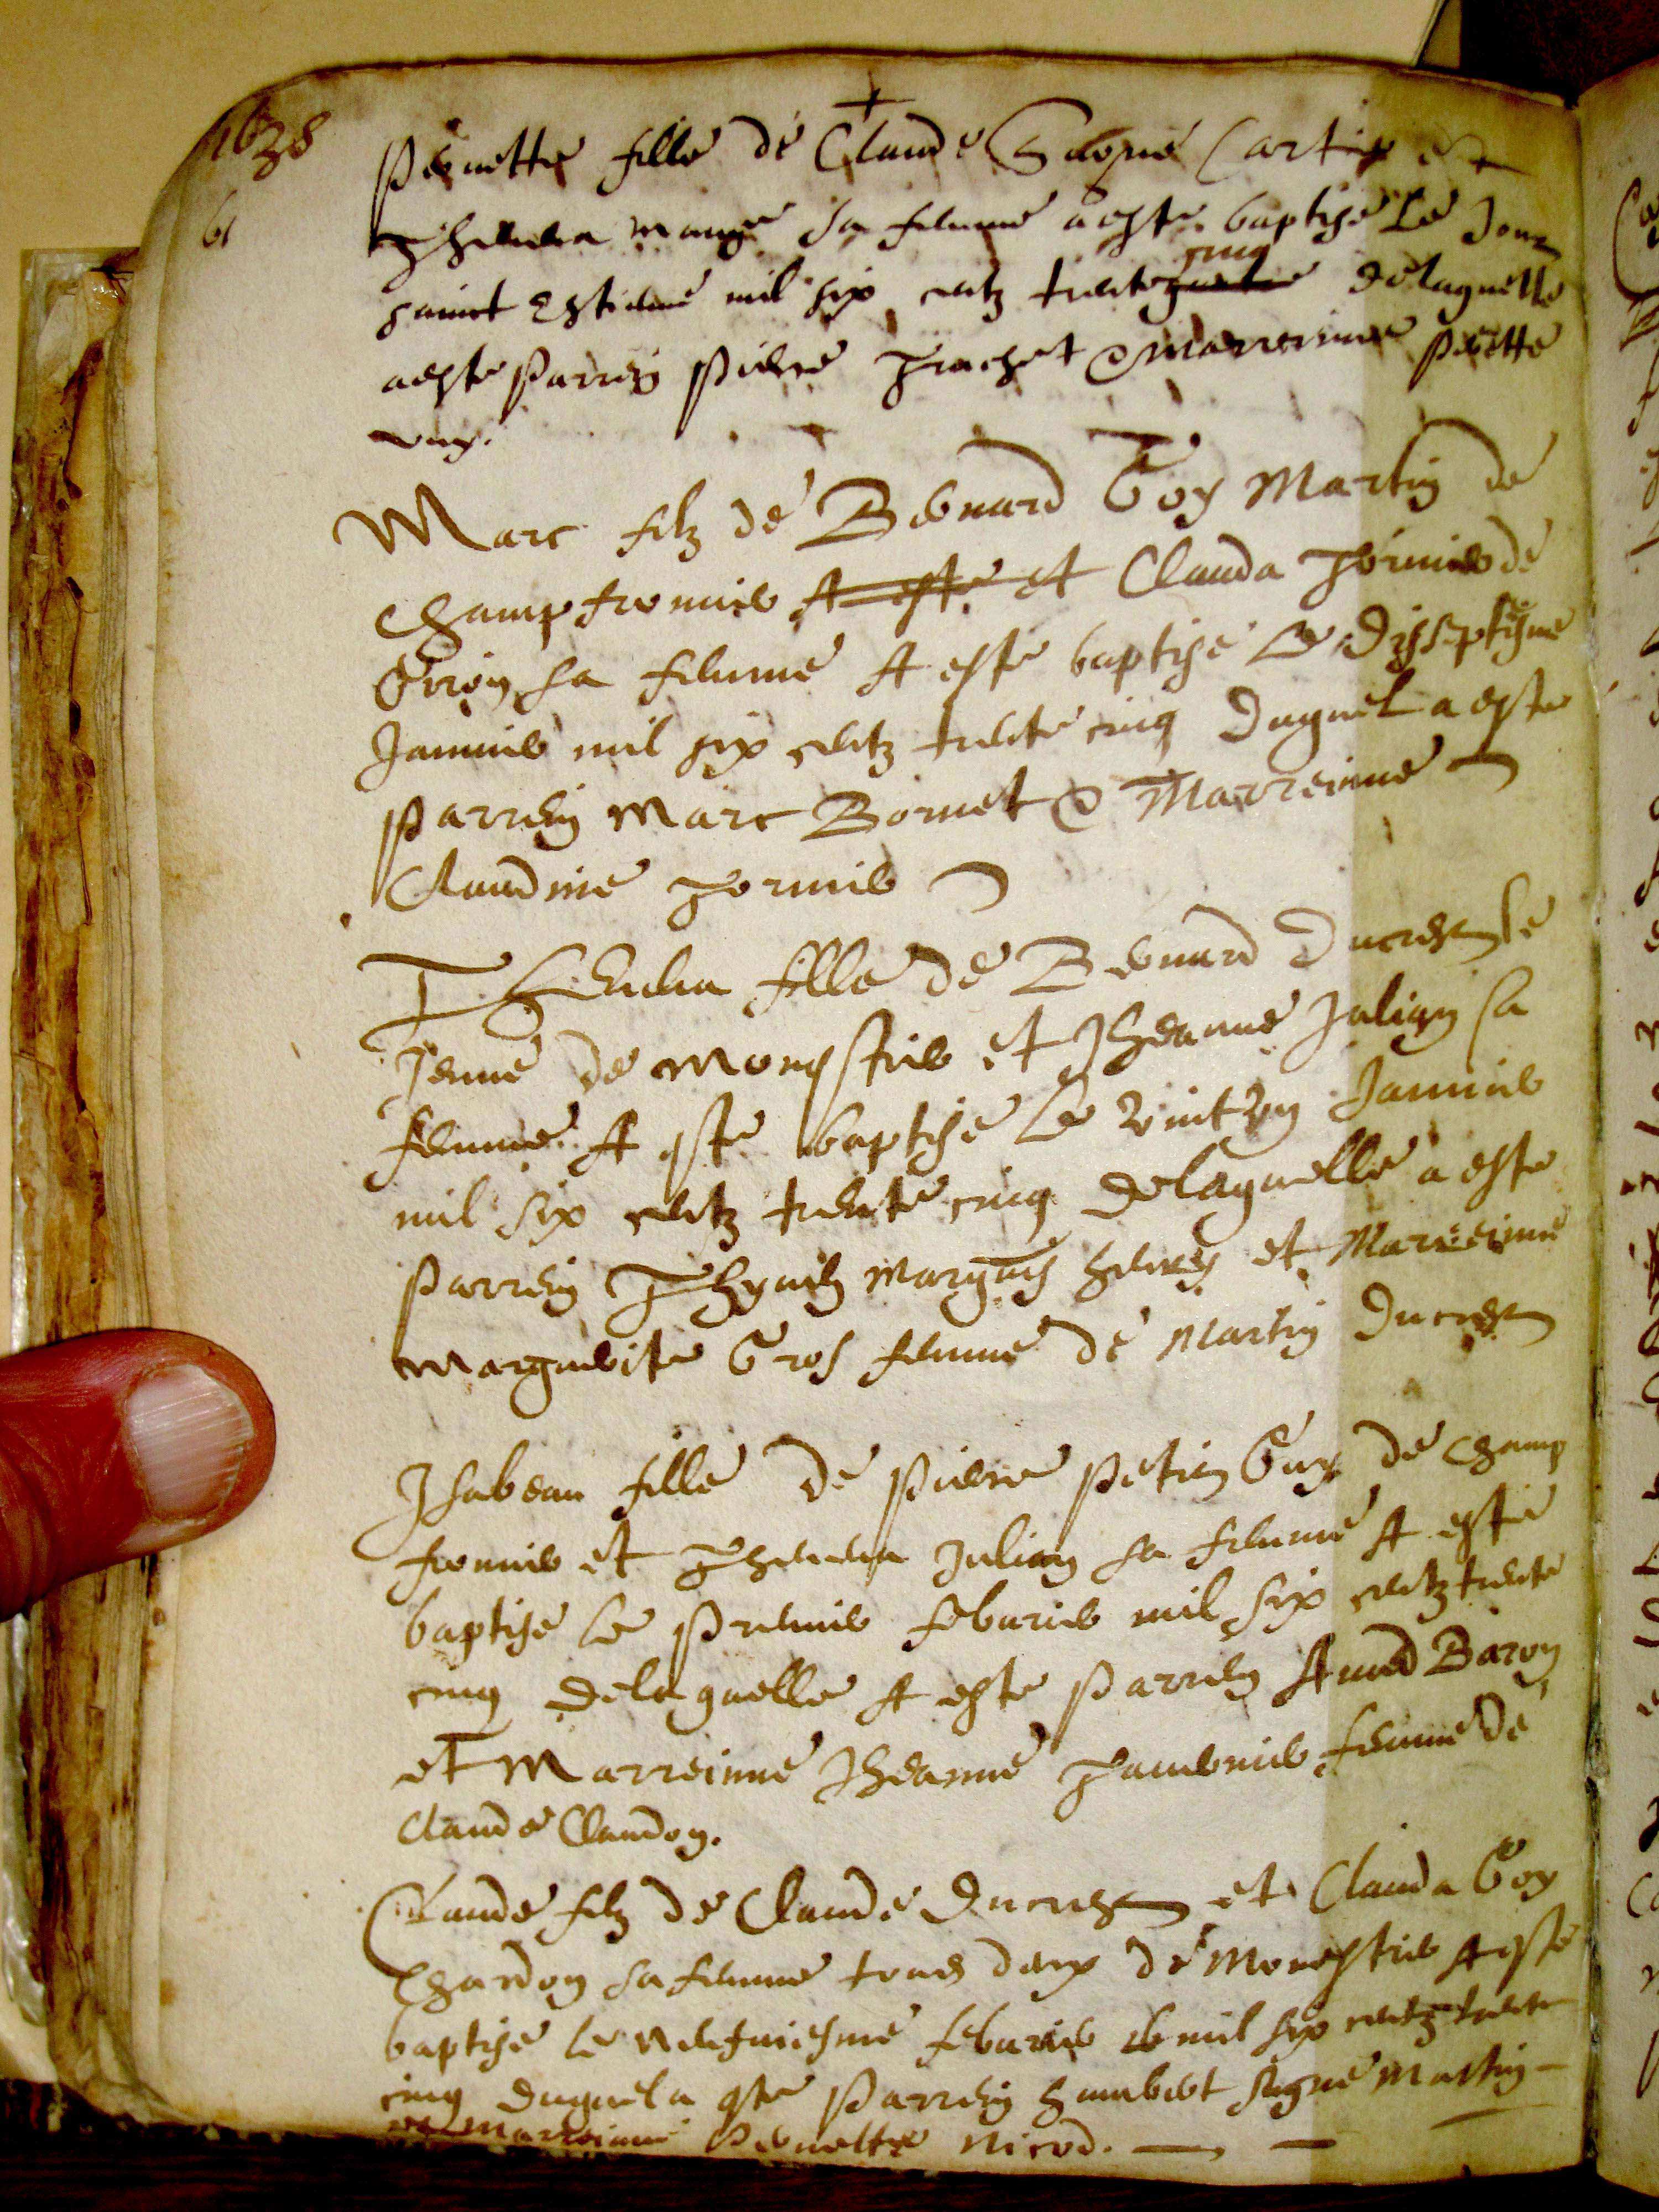 1638
61
Pernette fille de Claude Cartie et
Thevena mange sa femme a este baptise Le Jour
sainct Estienne mil six centz trente quatre cinq de laquelle
a este Parrin Pierre Frachet & Marreinne Pernette
Marc filz de Bernard Goy Martin de
Champfromier A este et Claude Tornier de
Giron sa femme A este baptise Le dixseptiesme
Januier mil six centz trente cinq Duquel a este
Parrein Marc Bornet & Marreinne
Claudine Tornier
Thevena fille de Bernard Ducrest le
Jeune de monestier et Jheanne Julian sa
femme A este baptise Le vint vng Januier
mil six centz trente cinq de laquelle a este
Parrein et Marreinne
marguerite Gros femme de Martin Ducrest
Jsabeau fille de Pierre Petin Guy de Champ
fromier et Thevena Julian sa femme A este
baptise Le Premier feburier mil six centz trente
cinq de laquelle A este Parrein Amed Baron
et Marreinne Jheanne Tauernier femme de
Claude Claudon.
Claude filz de Claude Ducrest et Clauda Goy
Chardon sa femme tous deux de Monestier A este
baptise Le neufuiesme feburier mil six centz trente
cinq Duquel a este Parrein humbert Martin
et Marreinne Pernette Nicod.